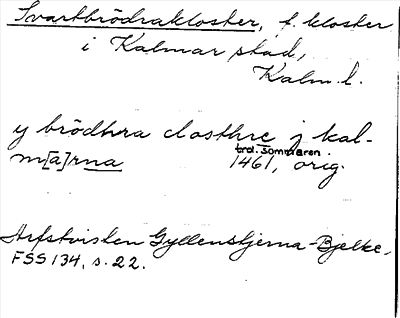 Svartbrödrakloster, f. kloster
i Kalmar stad,
Kalm. l.
y brödhra closthre j kal-
m[a]rna
trol. sommaren.
1461, orig.
Arfstvisten Gyllenstjerna-Bjelke,
FSS 134, s. 22.